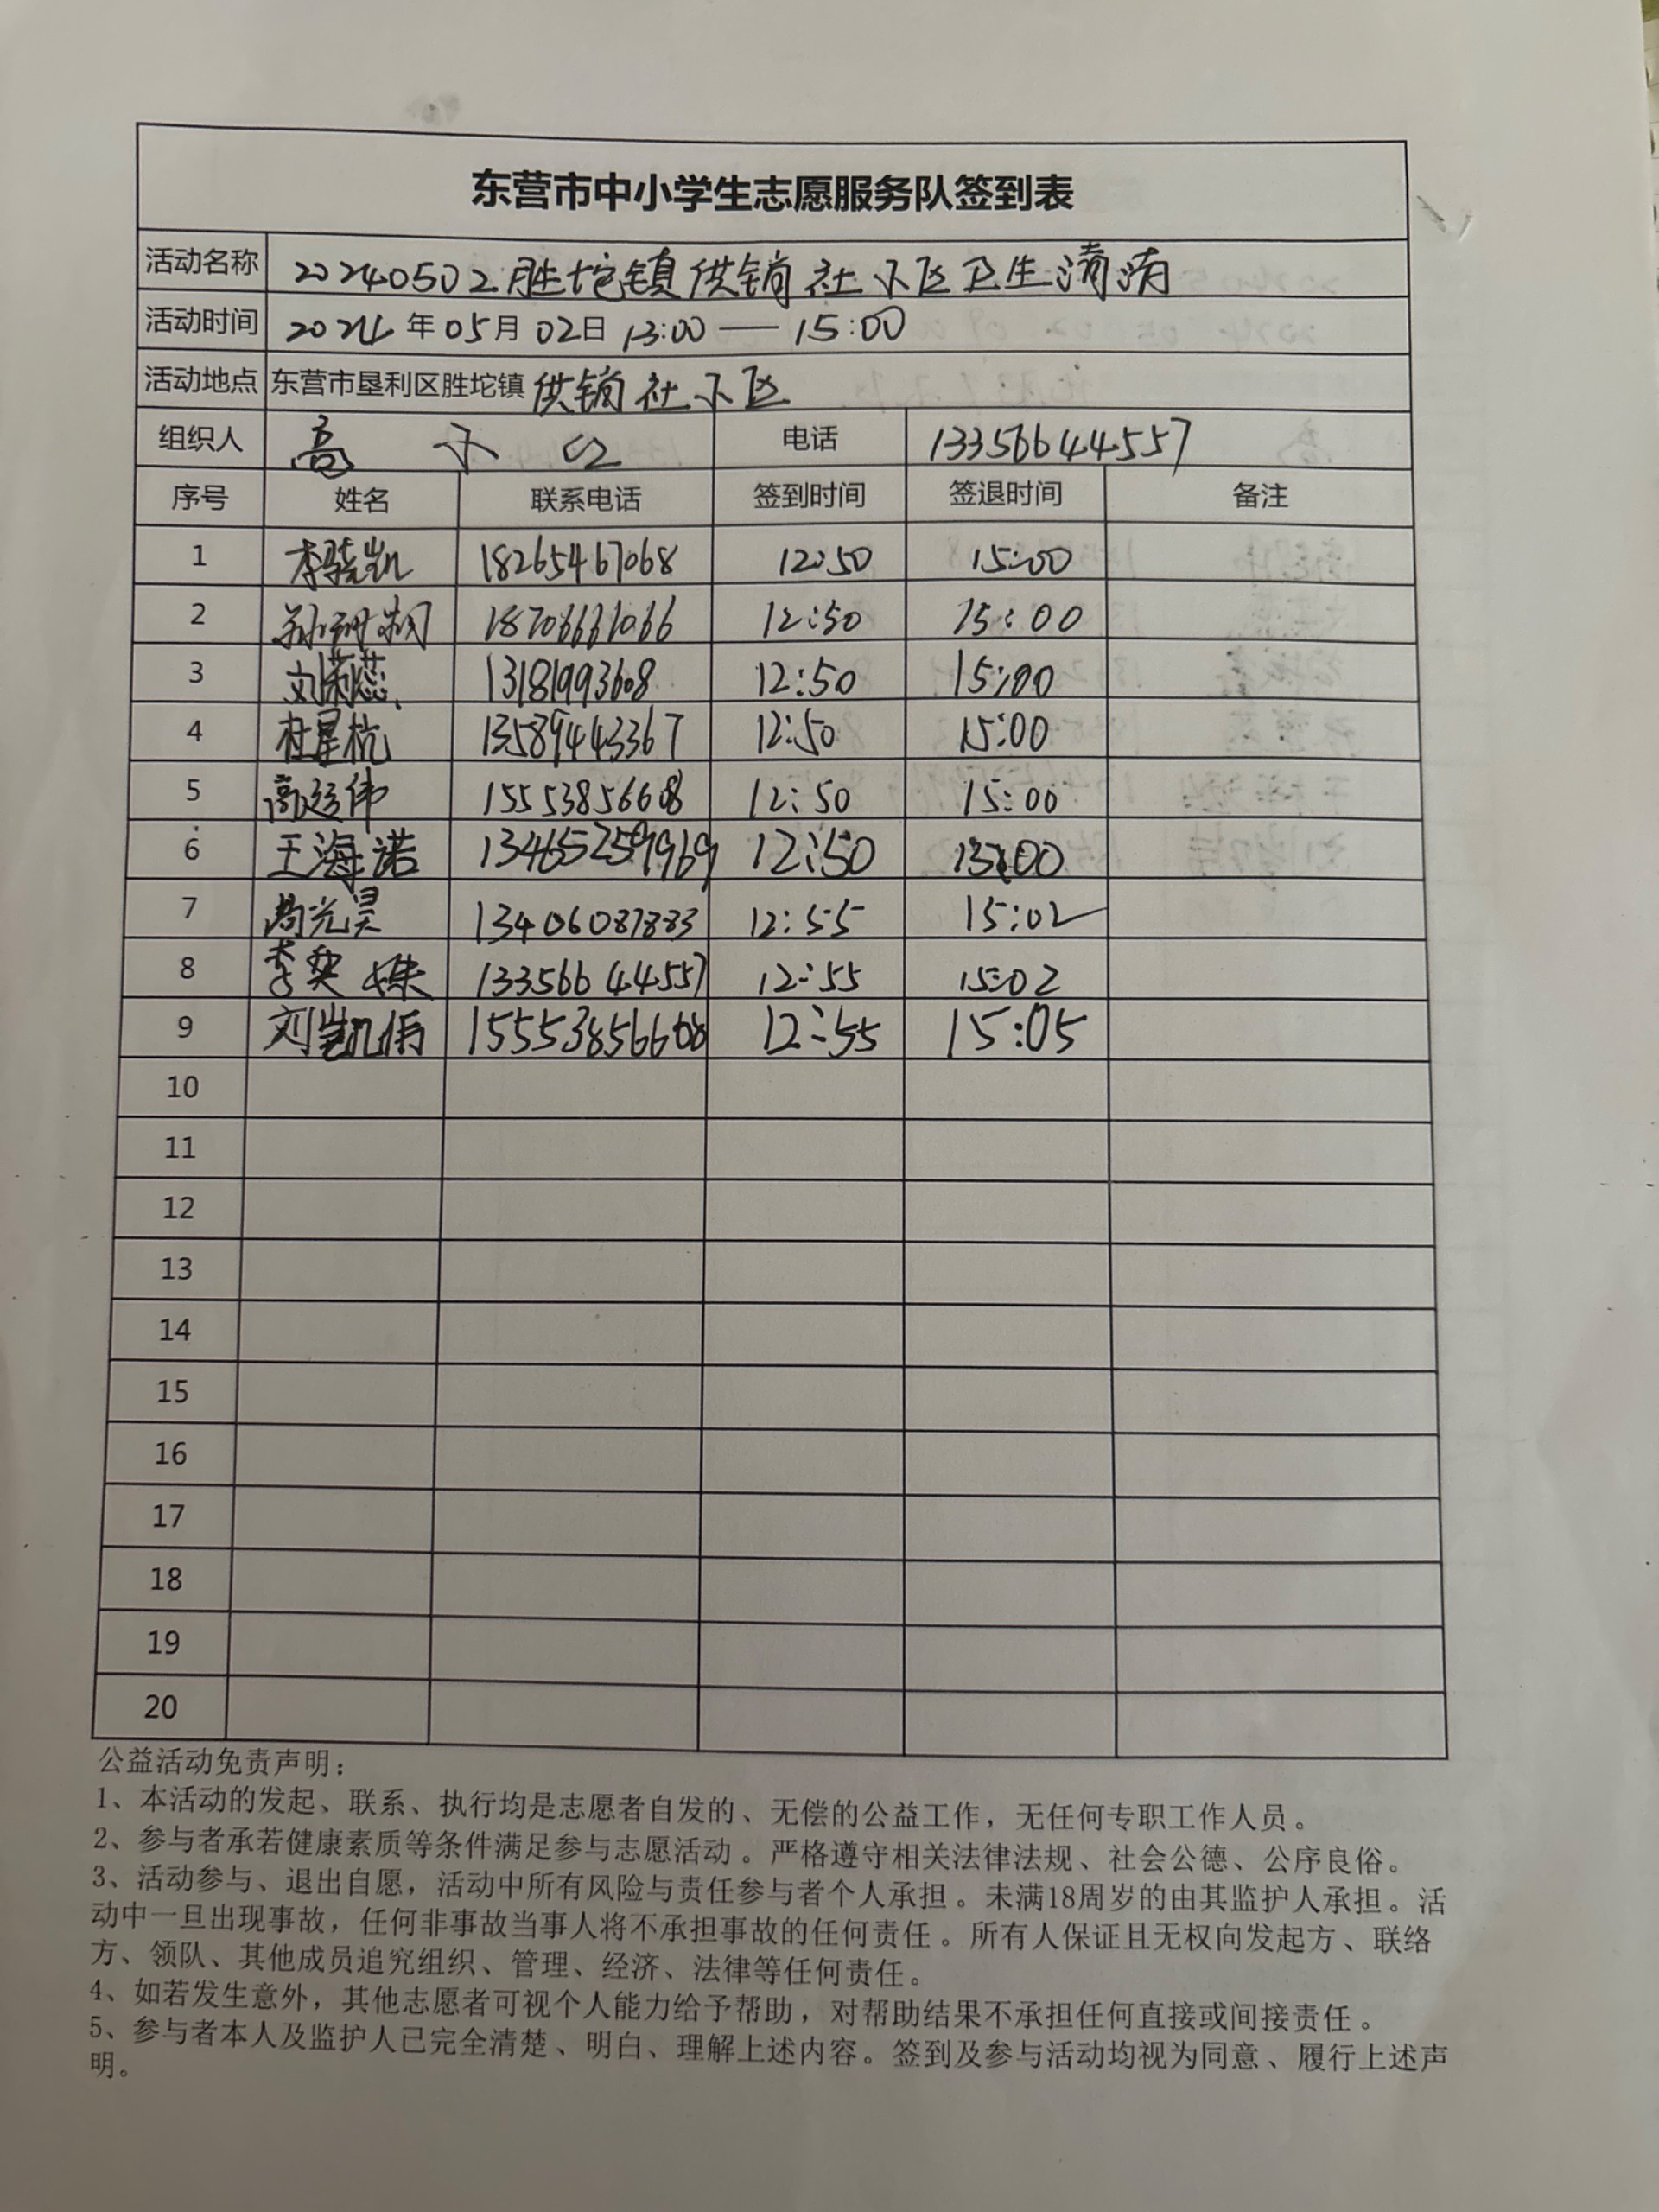 东营市中小学生志愿服务队签到表
活动名称 20240502胜坨镇供销社小区卫生清洁
活动时间 2024年05月02日 13:00——15:00
活动地点 东营市垦利区胜坨镇供销社小区
组织人 高 电话 13356644557
序号 姓名 联系电话 签到时间 签退时间 备注
1 李骁凯 18265467068 12:50 15:00
2 孙 18706661066 12:50 15:00
3 刘 蕊 13181993608 12:50 15:00
4 杜星杭 13589443367 12:50 15:00
5 高运伟 15553856608 12:50 15:00
6 王海诺 13465259969 12:50 15:00
7 光昊 13406087883 12:55 15:02
8 李奕姝 13356644557 12:55 15:02
9 刘凯 15553856608 12:55 15:05
10
11
12
13
14
15
16
17
18
19
20
公益活动免责声明：
1、本活动的发起、联系、执行均是志愿者自发的、无偿的公益工作，无任何专职工作人员。
2、参与者承若健康素质等条件满足参与志愿活动。严格遵守相关法律法规、社会公德、公序良俗。
3、活动参与、退出自愿，活动中所有风险与责任参与者个人承担。未满18周岁的由其监护人承担。活
动中一旦出现事故，任何非事故当事人将不承担事故的任何责任。所有人保证且无权向发起方、联络
方、领队、其他成员追究组织、管理、经济、法律等任何责任。
4、如若发生意外，其他志愿者可视个人能力给予帮助，对帮助结果不承担任何直接或间接责任。
5、参与者本人及监护人已完全清楚、明白、理解上述内容。签到及参与活动均视为同意、履行上述声
明。